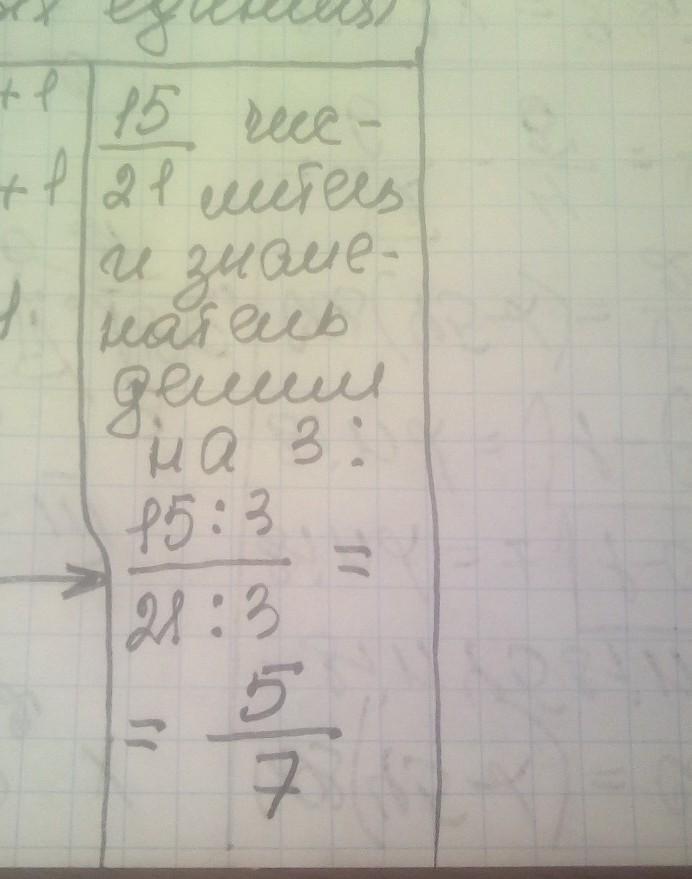 ых единиц)
+1
+1
15/21 чис-
литель
и знаме-
натель
делим
на 3:
15:3/21:3 =
= 5/7